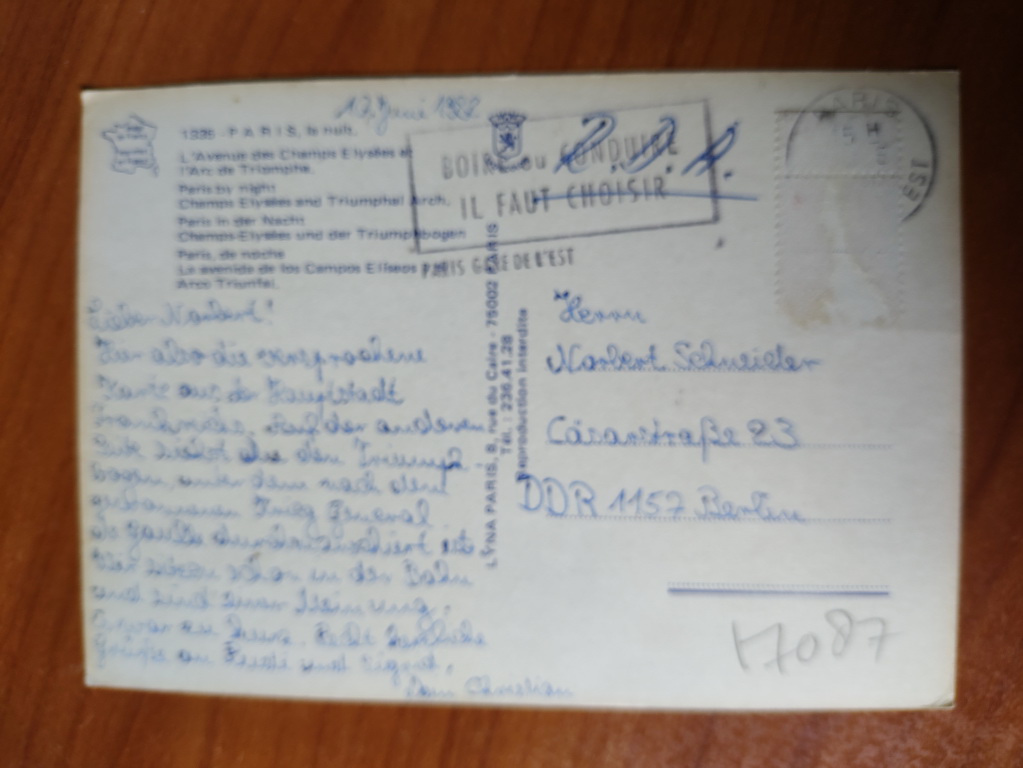 17. Juni 1982
1335 - PARIS, la nuit.
L'Avenue des Champs Elysées et
l'Arc de Triomphe.
Paris by night
Champs Elysées and Triumphal Arch.
Paris in der Nacht
Champs Elysées und der Triumphbogen
Paris, de noche
La avenida de los Campos Eliseos y el
Arco Triunfal.
BOIRE ou CONDUIRE
IL FAUT CHOISIR
PARIS GARE DE L'EST
R.D.A.
PARIS
15 H
LYNA PARIS, 8, rue du Caire - 75002 PARIS
Tél. : 236.41.28
Reproduction interdite
Lieber Norbert!
Hier also die versprochene
Karte aus der Hauptstadt
Frankreichs. Auf der anderen
Seite siehst du den Triumph-
bogen, unter dem nach dem
gewonnenen Krieg General
de Gaulle durchmarschiert ist.
Wir sitzen schon in der Bahn
und sind einer Meinung:
Es war zu kurz. Recht herzliche
Grüße an
Dein Christian
Herrn
Norbert Schneider
Cäsarstraße 23
DDR 1157 Berlin
17087